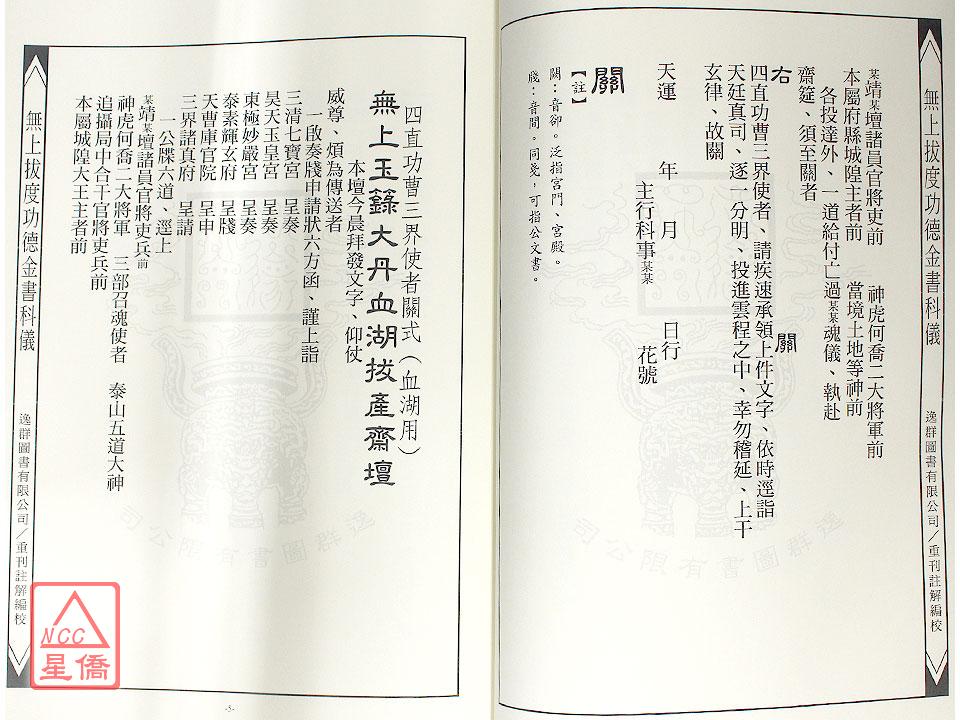 無上拔度功德金書科儀
逸群圖書有限公司／重刊註解編校
某靖某壇諸員官將吏前　神虎何喬二大將軍前
本屬府縣城隍主者前　當境土地等神前
各投達外、一道給付亡過某某魂儀、執赴
齋筵、須至關者
右　關
四直功曹三界使者、請疾速承領上件文字、依時逕詣
天廷真司、逐一分明、投進雲程之中、幸勿稽延、上干
玄律、故關
天運　年　月　日行
主行科事某某　花號
關
【註】
闕：音卻。泛指宮門、宮殿。
牋：音間。同箋，可指公文書。
四直功曹三界使者關式（血湖用）
無上玉籙大丹血湖拔產齋壇
本壇今晨拜發文字、仰仗
威尊、煩為傳送者
一啟奏牋申請狀六方函、謹上詣
三清七寶宮　呈奏
昊天玉皇宮　呈奏
東極妙嚴宮　呈奏
泰素輝玄府　呈牋
天曹庫官院　呈申
三界諸真府　呈請
一公牒六道、逕上
某靖某壇諸員官將吏兵前
神虎何喬二大將軍　三部召魂使者　泰山五道大神
追攝局中合干官將吏兵前
本屬城隍大王主者前
無上拔度功德金書科儀
逸群圖書有限公司／重刊註解編校
-5-
NCC
星僑
逸群圖書有限公司